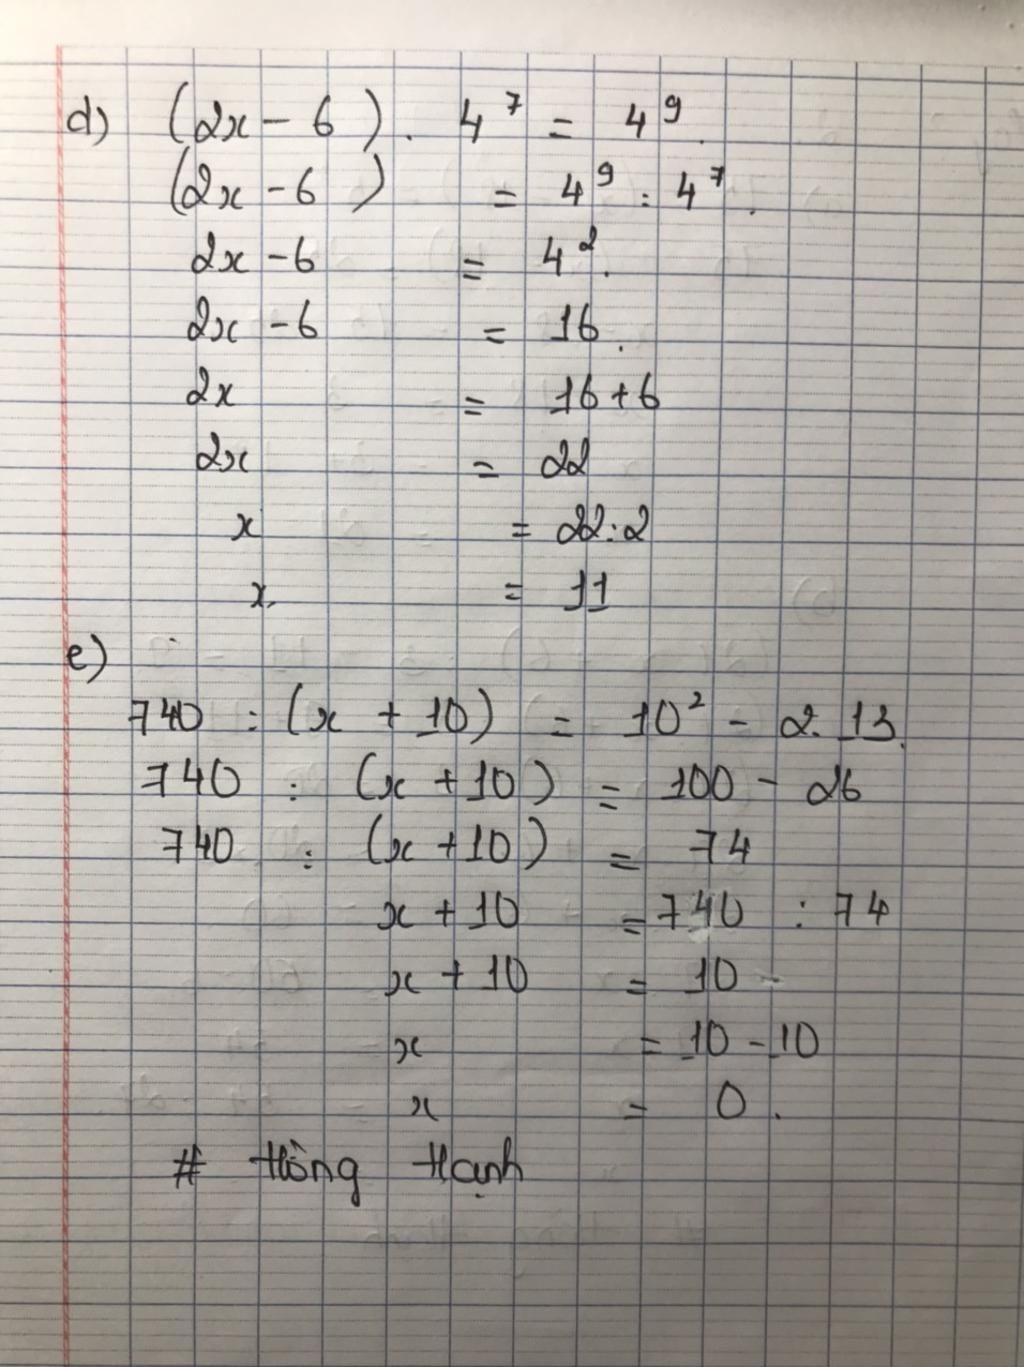 d) (2x - 6) . 4⁷ = 4⁹.
(2x - 6) = 4⁹ : 4⁷.
2x - 6 = 4².
2x - 6 = 16.
2x = 16 + 6
2x = 22
x = 22 : 2
x = 11
e)
740 : (x + 10) = 10² - 2. 13.
740 : (x + 10) = 100 - 26
740 : (x + 10) = 74
x + 10 = 740 : 74
x + 10 = 10
x = 10 - 10
x = 0.
# Hồng Hạnh